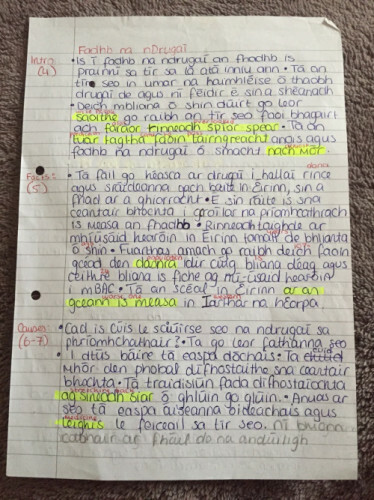 Fadhb na nDrugaí
Intro (4) • Is í fadhb na ndrugaí an fhadhb is
práinní sa tír sa lá atá inniu ann • Tá an
tír seo in umar na haimhléise ó thaobh
drugaí de agus ní féidir é sin a shéanadh
• Deich mbliana ó shin dúirt go leor
saoithe go raibh an tír seo faoi bhagairt
ach faraor rinneadh spior spear • Tá an
tuar tagtha faoin tairngreacht anois agus
fadhb na ndrugaí ó smacht nach mór.
Facts: (5) • Tá fáil go héasca ar drugaí i hallaí rince
agus sráideanna gach baile in Éirinn, sin a
fhad ar a ghiorracht • É sin ráite is sna
ceantair bhochta i gcroílár na príomhcathrach
is measa an fhadhb • Rinneadh taighde ar
mhíúsáid hearóin in Éirinn tamall de bhlianta
ó shin • Fuarthas amach go raibh deich faoin
gcéad den daonra idir cúig bliana déag agus
ceithre bliana is fiche ag mí úsáid hearóin
i mBÁC • Tá an scéal in Éirinn ar an
gceann is measa in Iarthar na hEorpa
Causes (6-7) • Cad is cúis le sciúirse seo na ndrugaí sa
phríomhchathair? • Tá go leor fáthanna seo
• I dtús báire tá easpa dóchais • Tá cuid
mhór den phobal dífhostaithe sna ceantair
bhochta • Tá traidisiún fada dífhostaíochta
ag síneadh siar ó ghlúin go glúin. • Anuas ar
seo tá easpa áiseanna oideachais agus
leighis le feiceáil sa tír seo. Ní bhíonn
cabhair ar fháil do na andúiligh